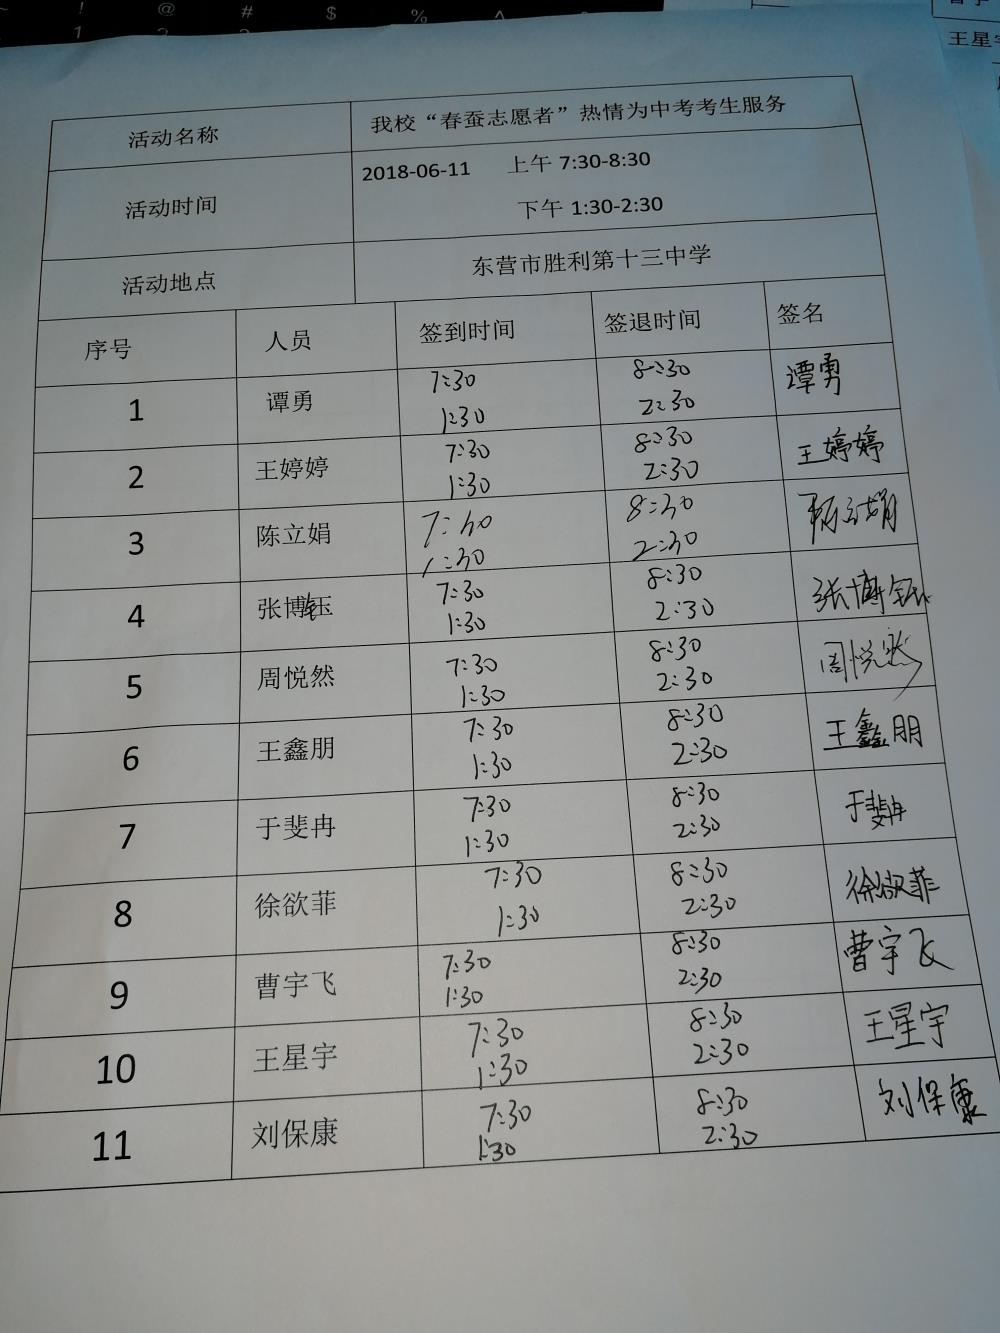 ! @ # $ % ^
王星宇
活动名称 我校“春蚕志愿者”热情为中考考生服务
活动时间 2018-06-11 上午 7:30-8:30
下午 1:30-2:30
活动地点 东营市胜利第十三中学
序号 人员 签到时间 签退时间 签名
1 谭勇 7:30 8:30 谭勇
1:30 2:30
2 王婷婷 7:30 8:30 王婷婷
1:30 2:30
3 陈立娟 7:30 8:30 陈立娟
1:30 2:30
4 张博钰 7:30 8:30 张博钰
1:30 2:30
5 周悦然 7:30 8:30 周悦然
1:30 2:30
6 王鑫朋 7:30 8:30 王鑫朋
1:30 2:30
7 于斐冉 7:30 8:30 于斐冉
1:30 2:30
8 徐欲菲 7:30 8:30 徐欲菲
1:30 2:30
9 曹宇飞 7:30 8:30 曹宇飞
1:30 2:30
10 王星宇 7:30 8:30 王星宇
1:30 2:30
11 刘保康 7:30 8:30 刘保康
1:30 2:30